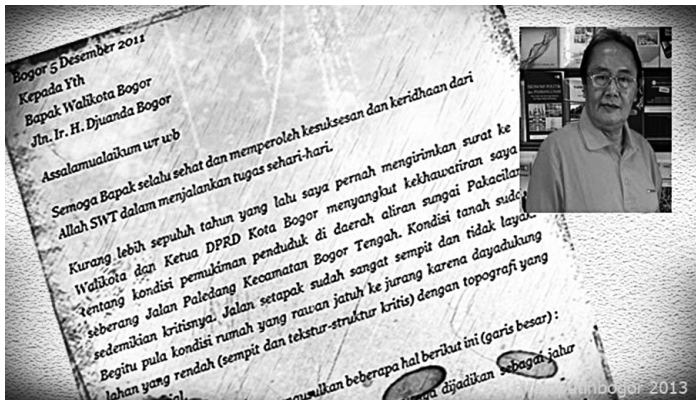 Bogor 5 Desember 2011
Kepada Yth
Bapak Walikota Bogor
Jln. Ir. H. Djuanda Bogor
Assalamualaikum wr wb
Semoga Bapak selalu sehat dan memperoleh kesuksesan dan keridhaan dari
Allah SWT dalam menjalankan tugas sehari-hari.
Kurang lebih sepuluh tahun yang lalu saya pernah mengirimkan surat ke
Walikota dan Ketua DPRD Kota Bogor menyangkut kekhawatiran saya
tentang kondisi pemukiman penduduk di daerah aliran sungai Pakacilan
seberang Jalan Paledang Kecamatan Bogor Tengah. Kondisi tanah sudah
sedemikian kritisnya. Jalan setapak sudah sangat sempit dan tidak layak.
Begitu pula kondisi rumah yang rawan jatuh ke jurang karena dayadukung
lahan yang rendah (sempit dan tekstur-struktur kritis) dengan topografi yang
beberapa hal berikut ini (garis besar) :
dijadikan sebagai jalur
2013